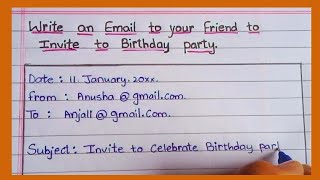 Write an Email to your Friend to
Invite to Birthday party.
Date : 11 January.20xx.
From : Anusha @ gmail.com.
To : Anjali @ gmail.com.
Subject : Invite to Celebrate Birthday par